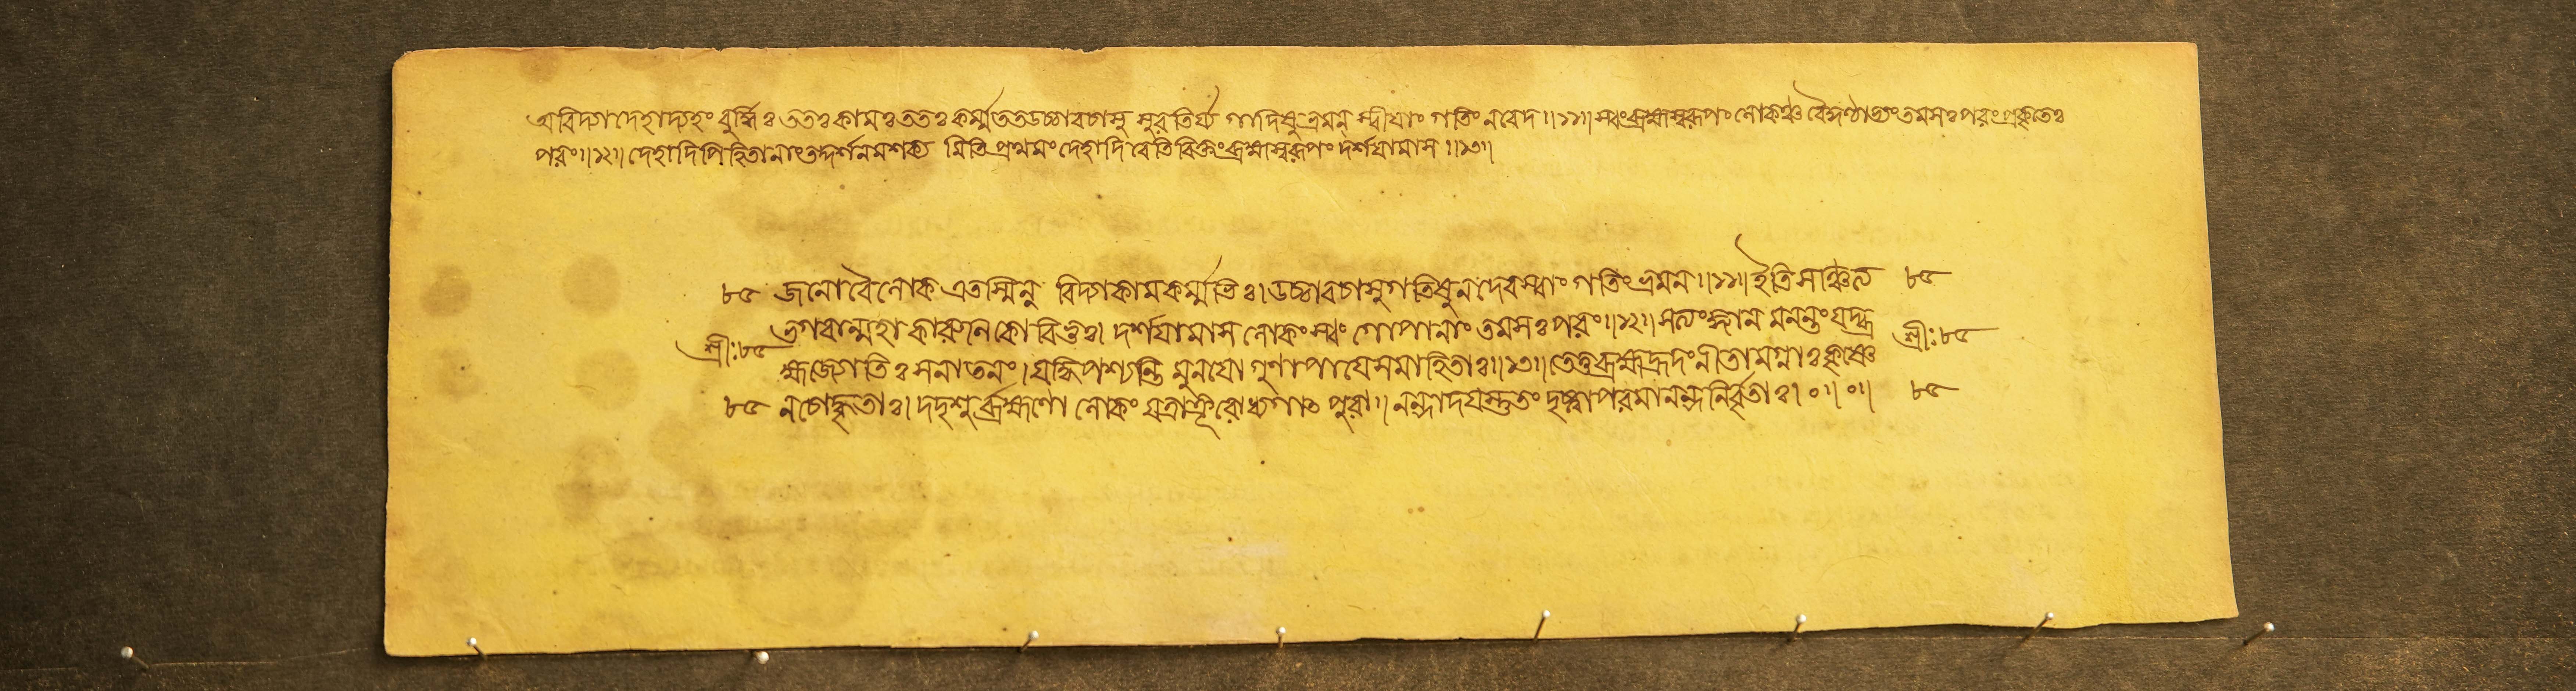 অবিদ্যাদেহাদ্যহং বুদ্ধিঃ ততঃ কামঃ ততঃ কর্ম্মততউচ্চাবচাসু সুরতির্য্য গাদিষুভ্রমন্ স্বীয়াং গতিং নবেদ॥১১॥স্বংব্রহ্মস্বরূপং লোকঞ্চ বৈকুণ্ঠাখ্যং তমসঃ পরংপ্রকৃতেঃ
পরং॥১২॥দেহাদিপিহিতানাংতদ্দর্শনমশক্য মিতি প্রথমং দেহাদি বেতিরিক্তংব্রহ্মস্বরূপং দর্শয়ামাস॥১৩॥
৮৫ জনোবৈলোক এতস্মিন্ন বিদ্যাকামকর্ম্মভিঃ।উচ্চাবচাসুগতিষুনবেদস্বাং গতিংভ্রমন॥১১॥ইতিসঞ্চিন্ত্য ৮৫
শ্রীঃ৮৫ ভগবান্মহাকারুনিকোবিভুঃ। দর্শয়ামাস লোকংস্বং গোপানাং তমসঃপরং॥১২॥সত্যংজ্ঞান মনন্তংযদ্ব্র শ্রীঃ৮৫
হ্মজ্যোতিঃ সনাতনং।যদ্ধিপশ্যন্তি মুনয়ো গুণাপায়েসমাহিতাঃ॥১৩॥তেতুব্রহ্মহ্রদংনীতামগ্নাঃকৃষ্ণে
৮৫ নচোদ্ধৃতাঃ।দদৃশুর্ব্রহ্মণো লোকং যত্রাক্রূরোধ্যগাৎ পুরা॥নন্দাদয়স্তুতং দৃষ্ট্বাপরমানন্দনির্বৃতাঃ।০॥০॥ ৮৫